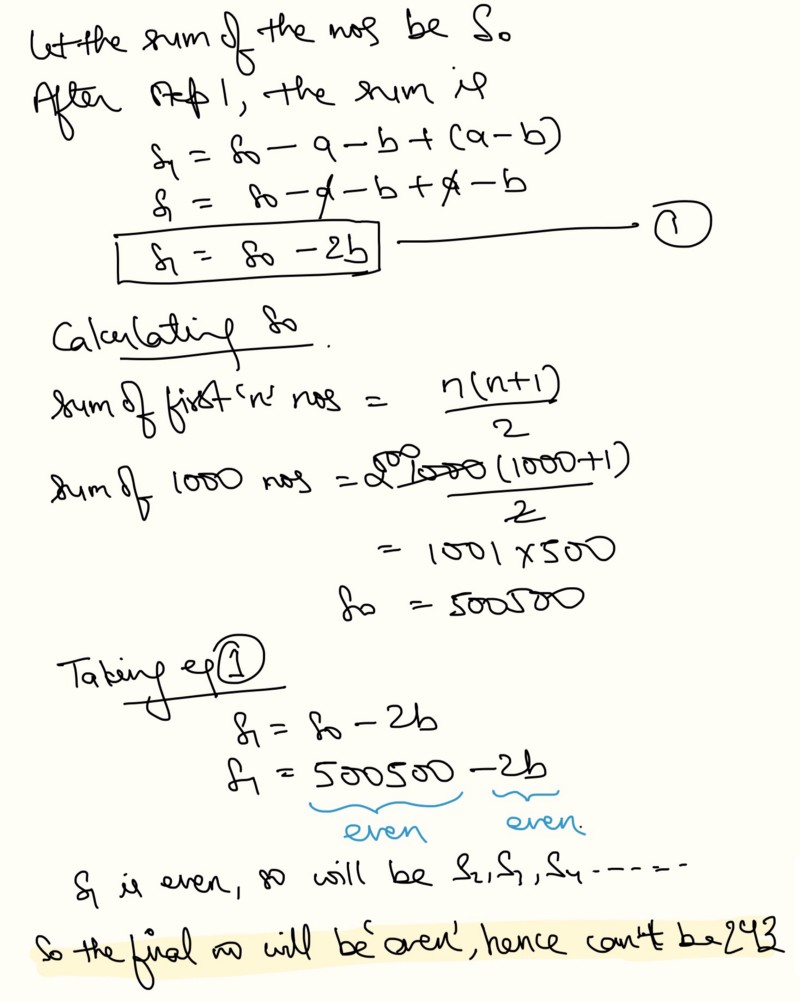 Let the sum of the nos be S₀
After step 1, the sum is
S₁ = S₀ - a - b + (a - b)
S₁ = S₀ - a - b + a - b
S₁ = S₀ - 2b ①
Calculating S₀.
Sum of first 'n' nos = n(n+1)/2
Sum of 1000 nos = 500 1000 (1000+1)/2
= 1001 × 500
S₀ = 500500
Taking eq ①
S₁ = S₀ - 2b
S₁ = 500500 - 2b
even even.
S₁ is even, so will be S₂, S₃, S₄ ------
So the final no will be 'even', hence can't be 243